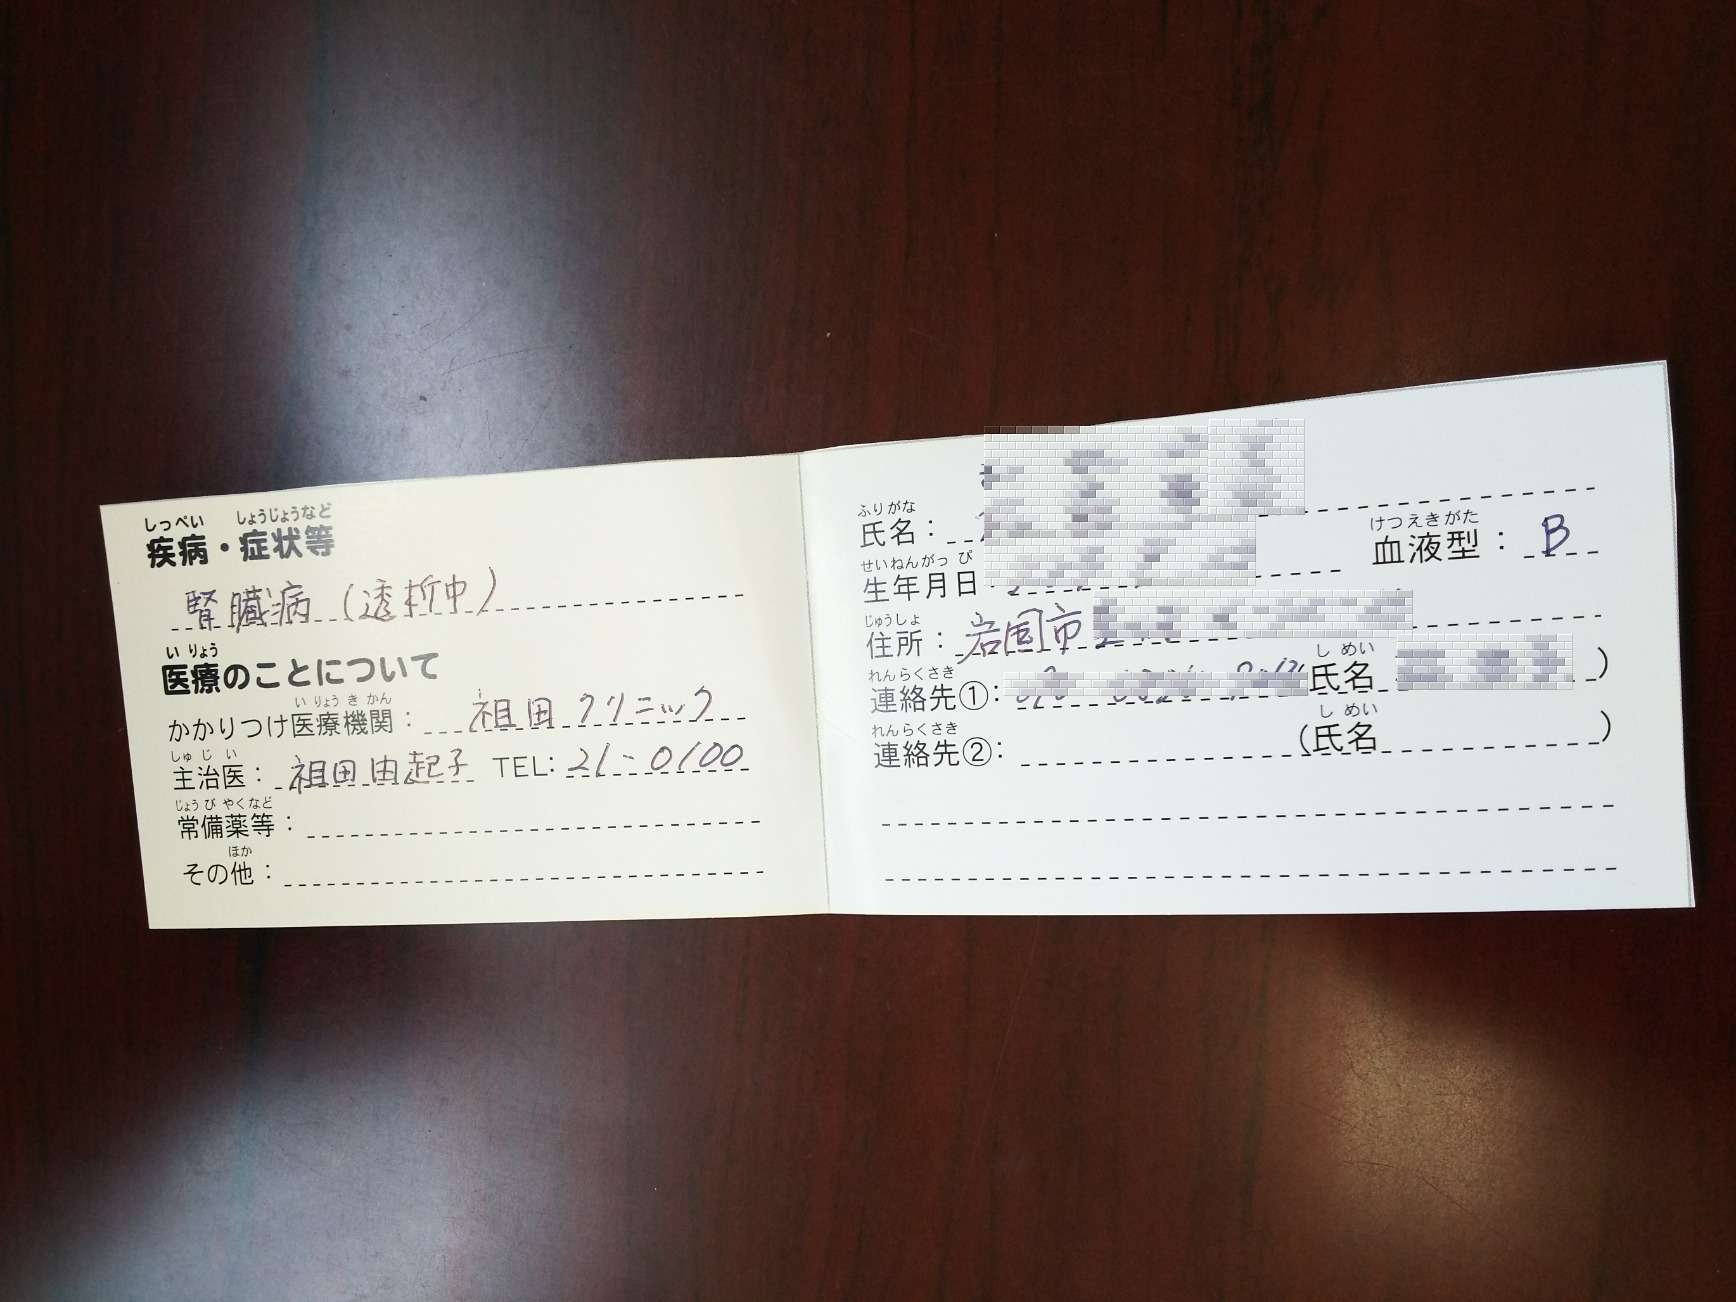 しっぺい しょうじょうなど
疾病・症状等
腎臓病(透析中)
いりょう
医療のことについて
いりょうきかん
かかりつけ医療機関： 祖田クリニック
しゅじい
主治医： 祖田由起子 TEL: 21-0100
じょうびやくなど
常備薬等：
ほか
その他：
ふりがな
氏名：
けつえきがた
血液型： B
せいねんがっぴ
生年月日：
じゅうしょ
住所： 岩国市
れんらくさき しめい
連絡先①： 氏名 )
れんらくさき しめい
連絡先②： (氏名 )